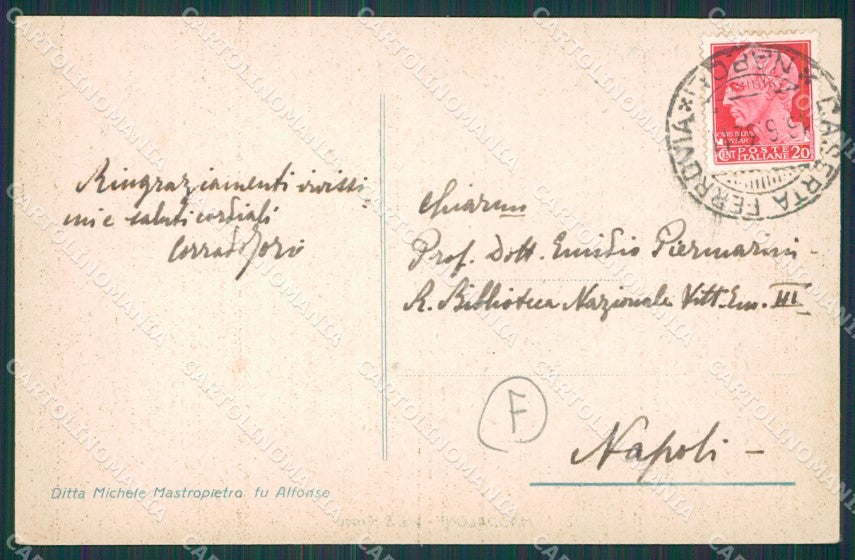 Ringraziamenti vivissi,
mi e saluti cordiali
Corrado
Chiarmo
Prof. Dott. Emidio Piermarini -
R. Biblioteca Nazionale Vitt. Em. III,
Napoli -
F
Ditta Michele Mastropietro fu Alfonso
CASERTA FERROVIA
NAPOLI
POSTE
CENT ITALIANE 20
CARTOLINOMANIA